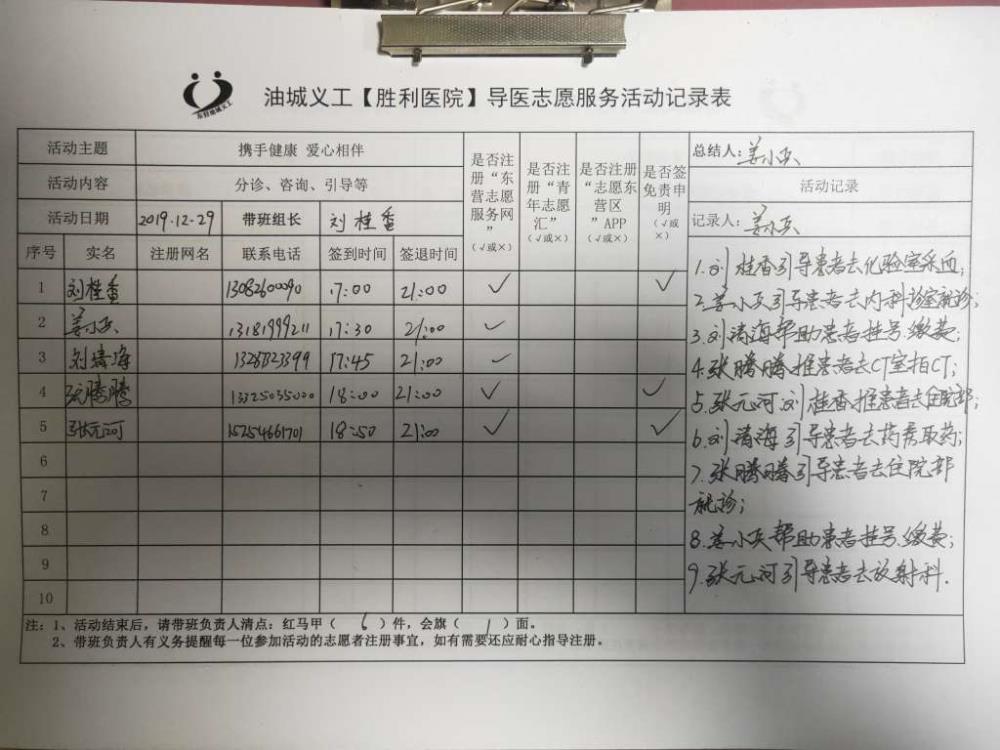 东营油城义工
油城义工【胜利医院】导医志愿服务活动记录表
活动主题 携手健康 爱心相伴
活动内容 分诊、咨询、引导等
活动日期 2019.12.29 带班组长 刘桂香
序号 实名 注册网名 联系电话 签到时间 签退时间
是否注册“东营志愿服务网”(√或×)
是否注册“青年志愿汇”(√或×)
是否注册“志愿东营区”APP(√或×)
是否签免责申明(√或×)
1 刘桂香 13082600090 17:00 21:00 √ √
2 姜小兵 13181999211 17:30 21:00 √
3 刘清海 13287323399 17:45 21:00 √
4 张腾腾 13325035000 18:00 21:00 √ √
5 张元河 15254661701 18:50 21:00 √ √
6
7
8
9
10
总结人:姜小兵
活动记录
记录人:姜小兵
1.刘桂香引导患者去化验室采血;
2.姜小兵引导患者去内科诊室就诊;
3.刘清海帮助患者挂号、缴费;
4.张腾腾推患者去CT室拍CT;
5.张元河、刘桂香推患者去住院部;
6.刘清海引导患者去药房取药;
7.张腾腾引导患者去住院部
就诊;
8.姜小兵帮助患者挂号、缴费;
9.张元河引导患者去放射科.
注:1、活动结束后,请带班负责人清点:红马甲( 6 )件,会旗( 1 )面。
2、带班负责人有义务提醒每一位参加活动的志愿者注册事宜,如有需要还应耐心指导注册。